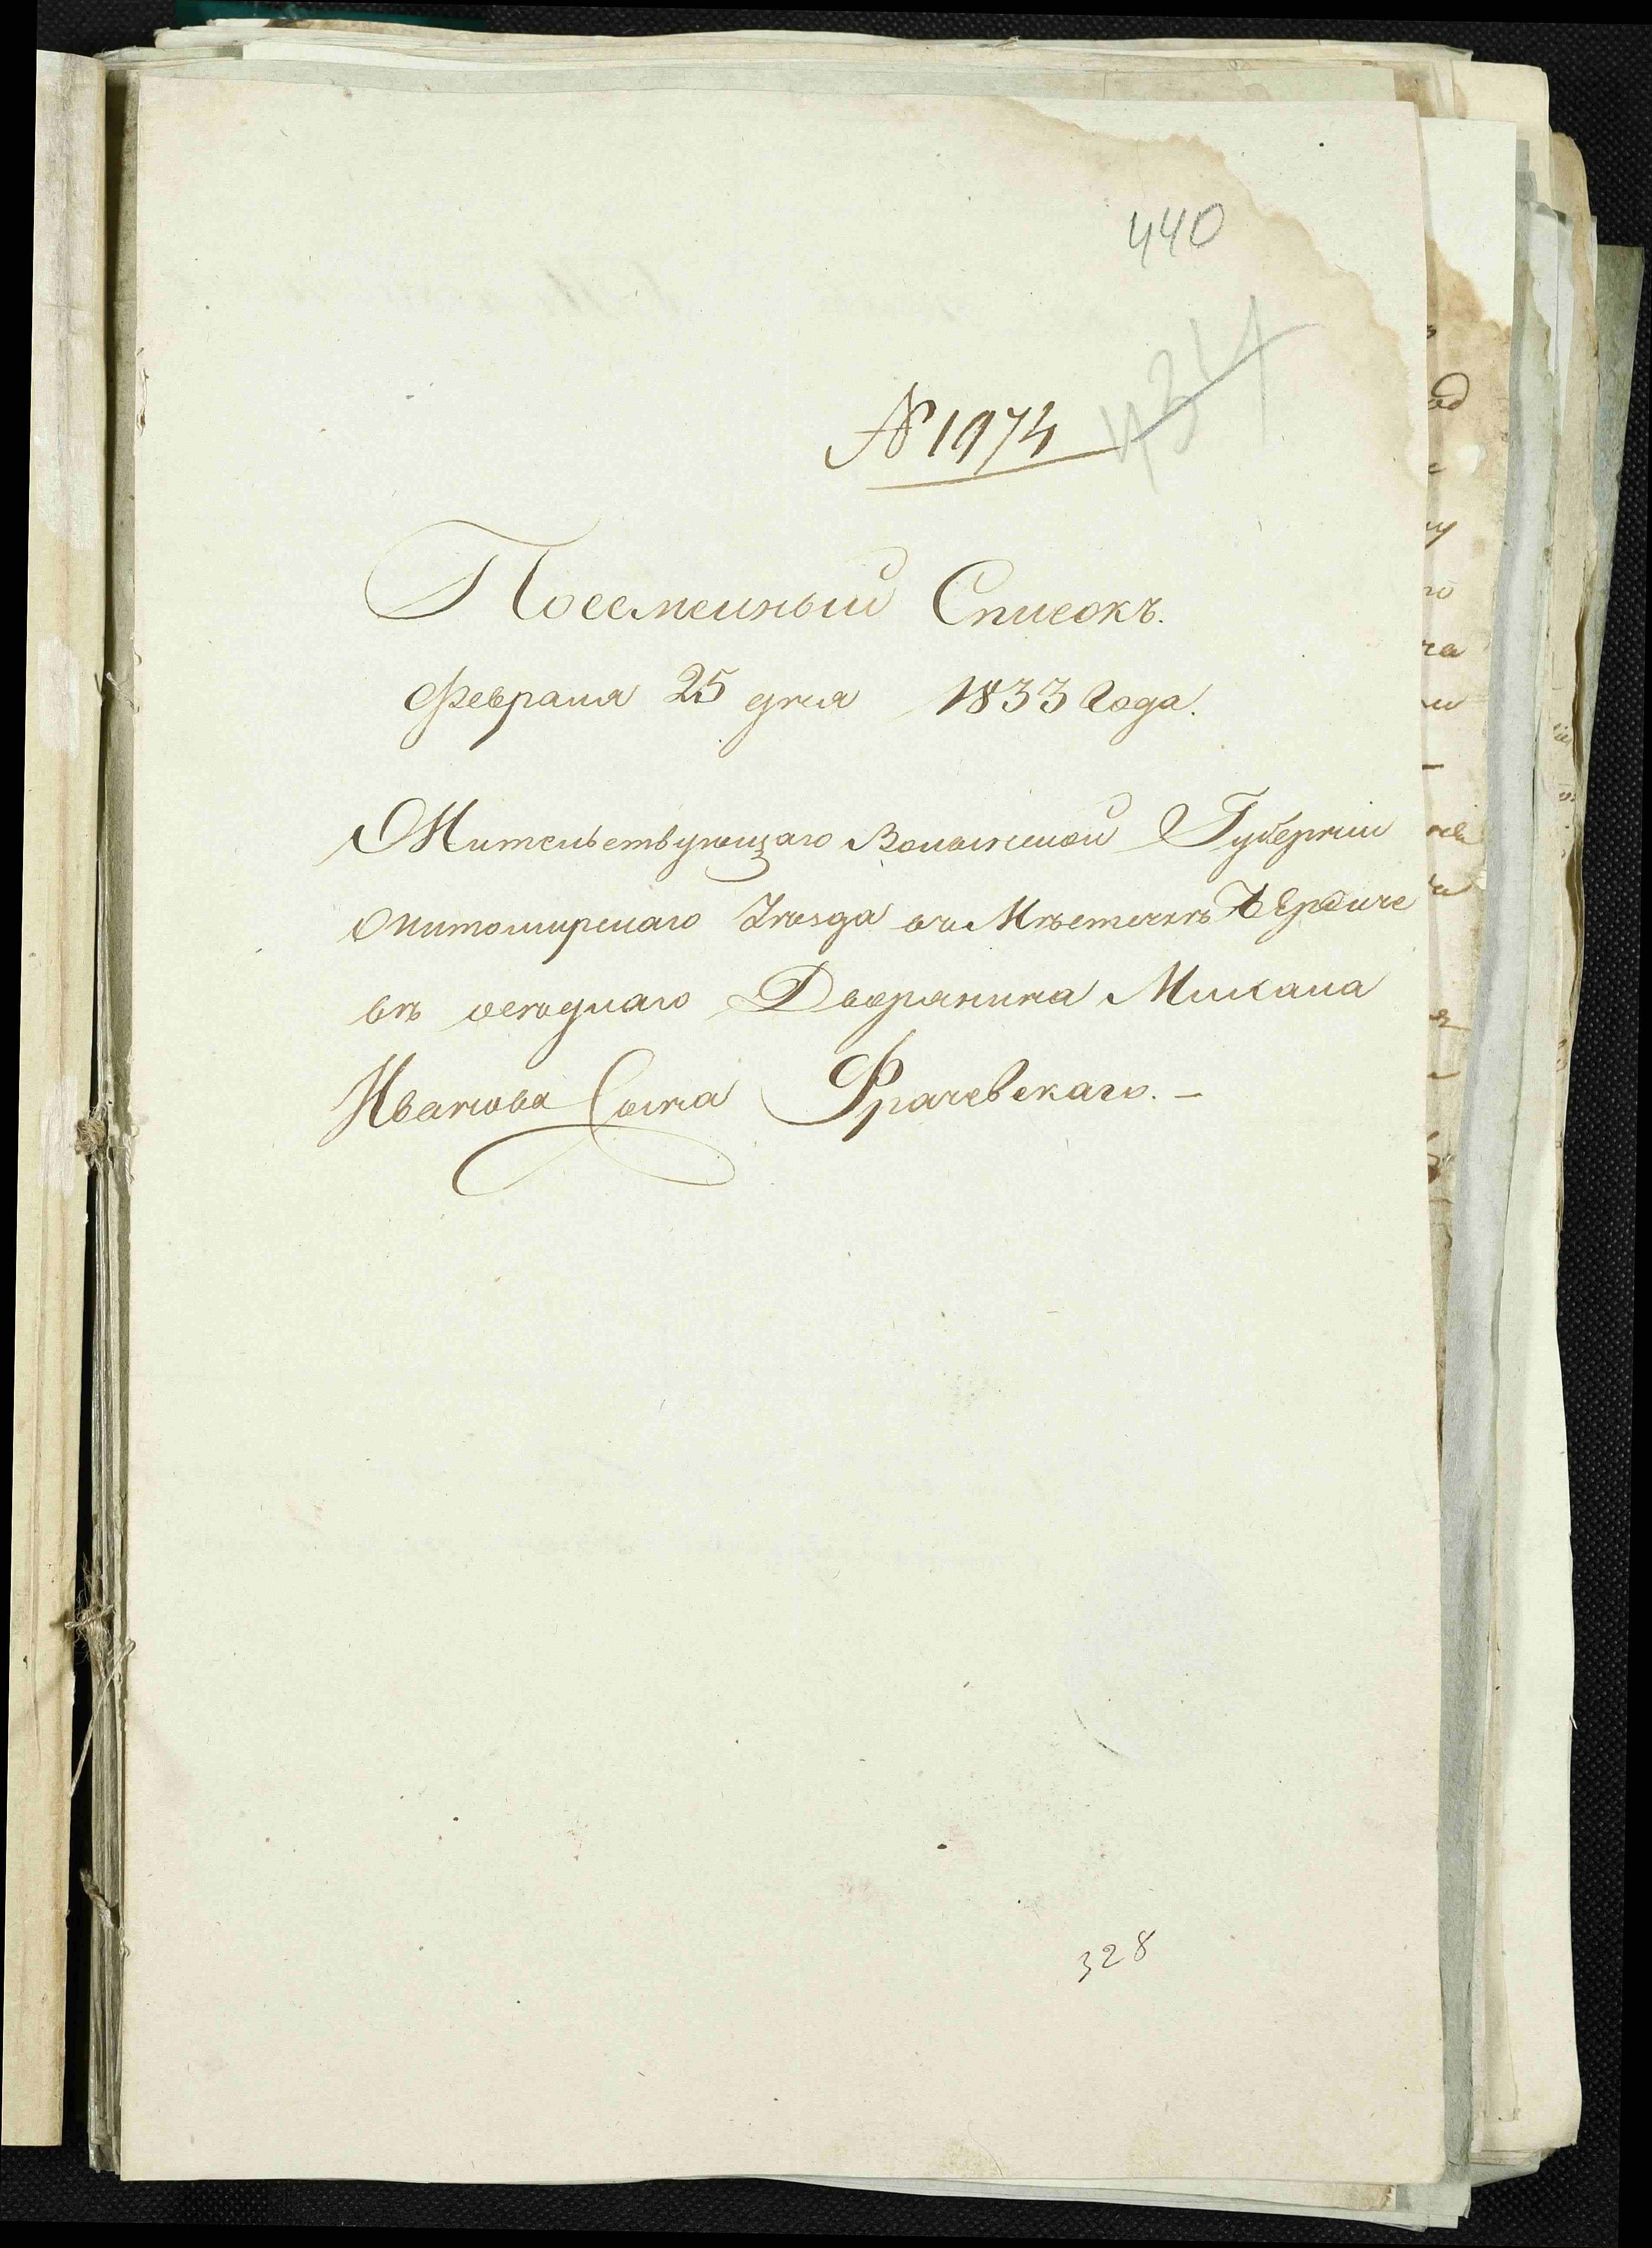 440
434
№ 1974
Посемейный Списокъ.
Февраля 25 дня 1833 Года.
Жительствующаго Волынской Губерніи
Житомирскаго Уѣзда въ Мѣстечкѣ Бердиче
вѣ Дворянина Михала
Иванова Сына Фрачевскаго. —
328